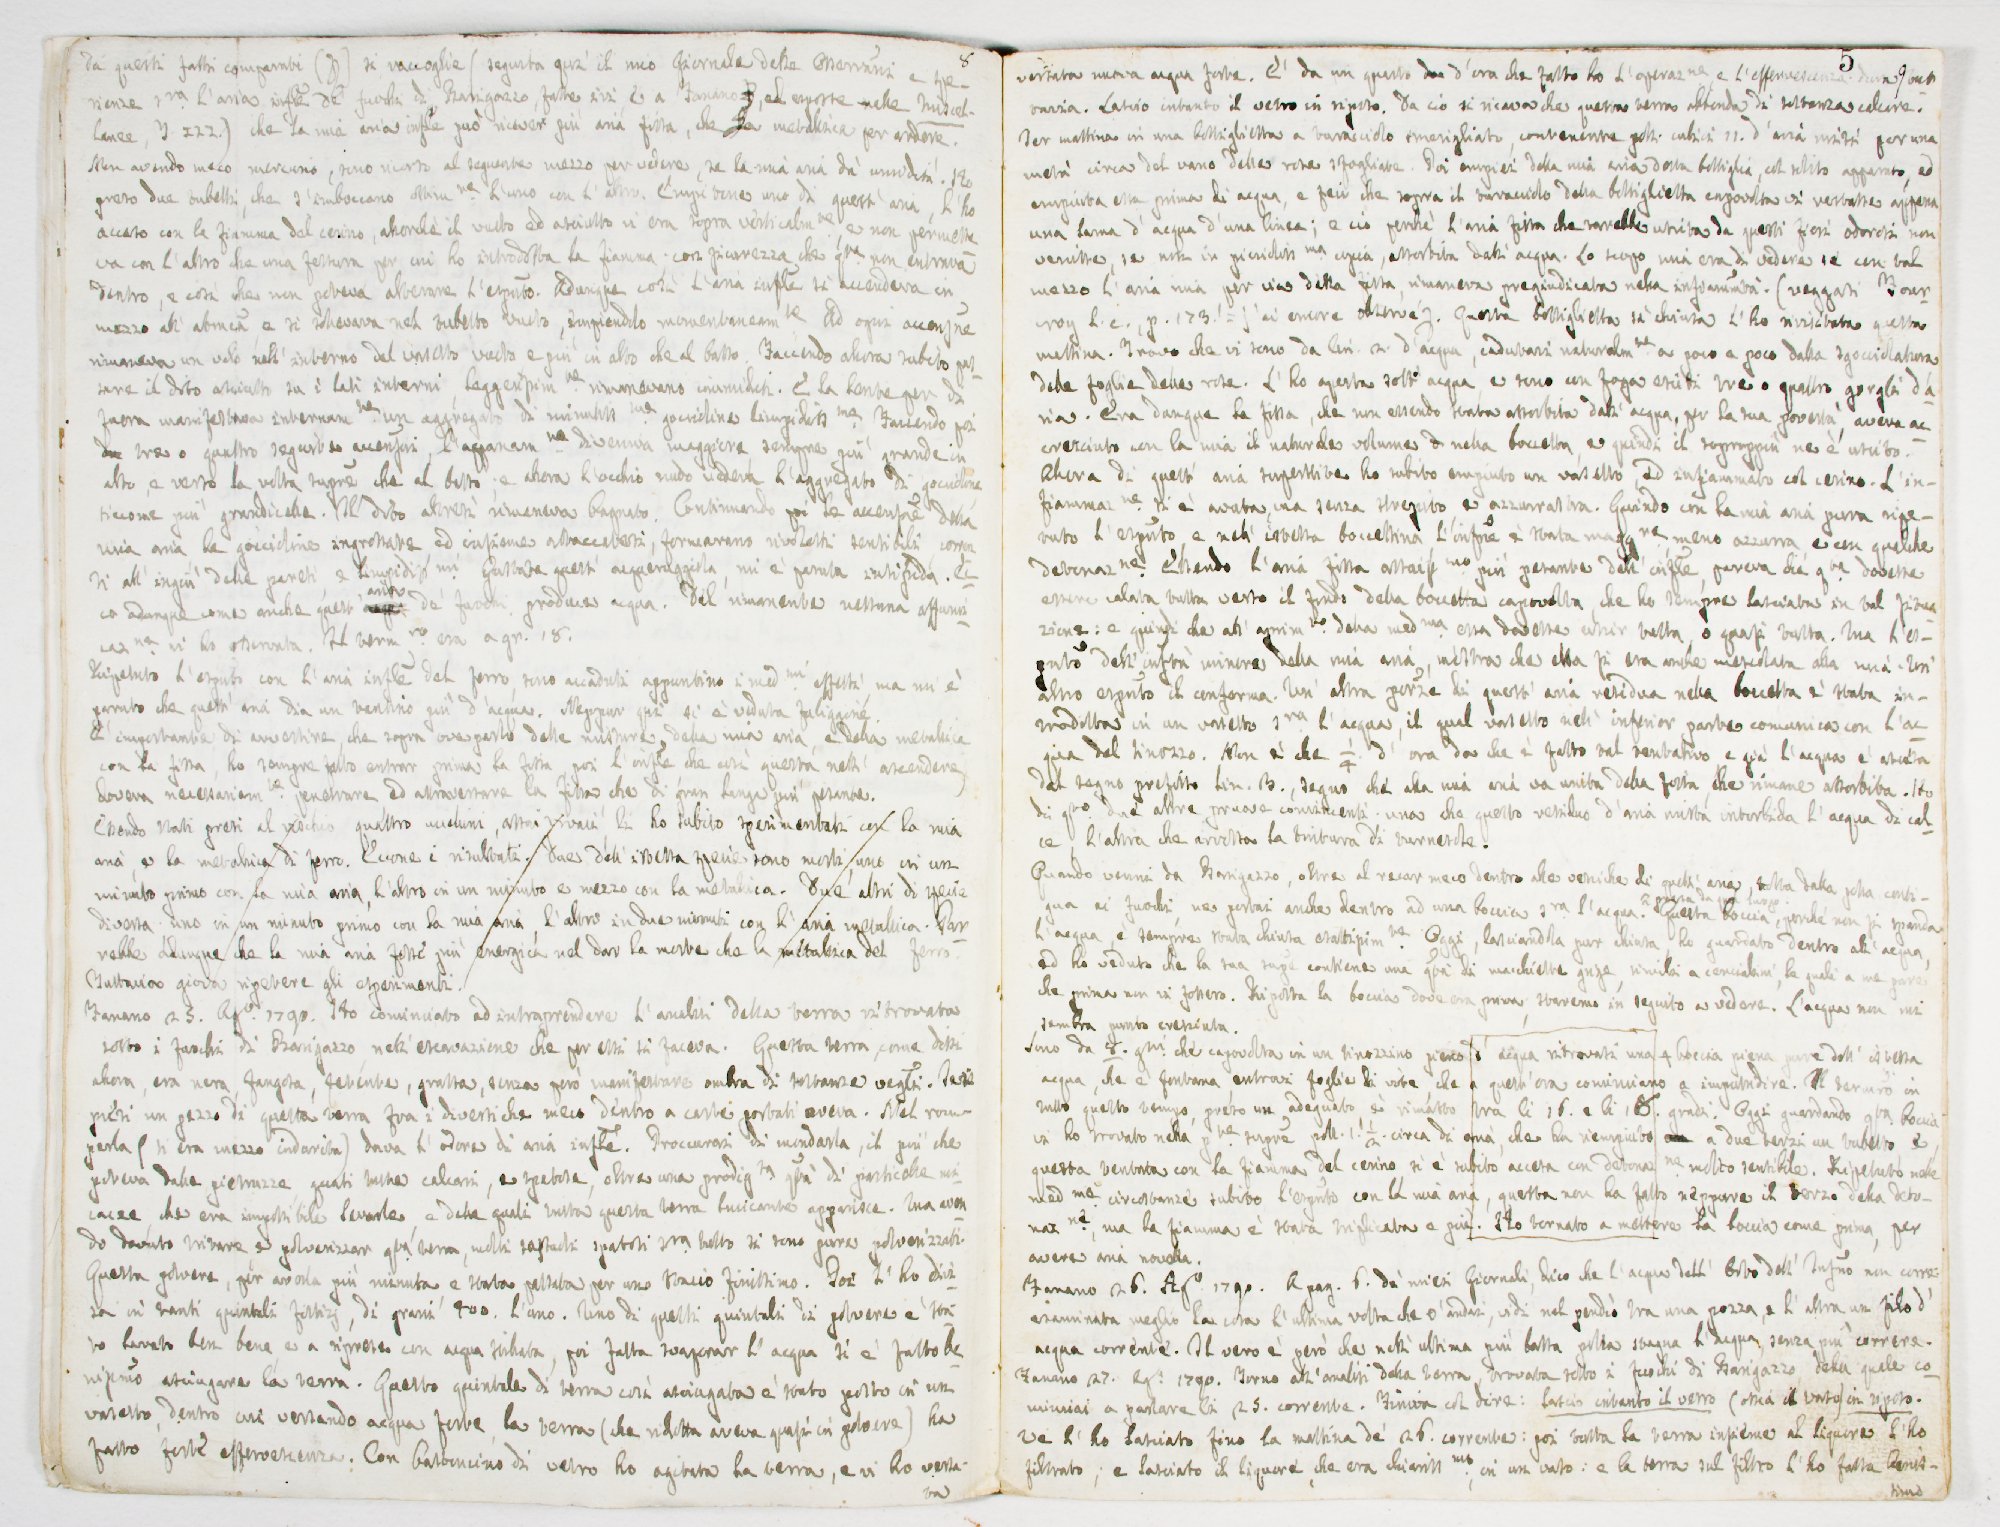 8
Da questi fatti comparati si raccoglie (seguita quì il mio Giornale delle Osservazi e spe-
rienze sra l'aria infle de' fuochi di Barigazzo, fatte ivi e a Fanano, ed esposte nelle Miscel-
lanee, ) che la mia aria infle può ricever più aria fissa, che la metallica per ardere.
Non avendo meco mercurio, sono ricorso al seguente mezzo per vedere, se la mia aria dà umidità. Ho
preso due tubetti, che s'imboccano l'uno con l'altro. Empi bene uno di quest'aria, l'ho
acceso con la fiamma del cerino, allorchè il vuoto ed asciutto vi era sopra verticalmte e non permette-
va con l'altro che una fessura per cui ho introdotta la fiamma con sicurezza che qta non entrava
dentro, e così che non poteva alterare l'esputo. Adunque così l'aria infle si accendeva in
mezzo all'atmca e si sollevava nel tubetto vuoto, empiendolo momentaneamte Ad ogni accensne
rimaneva un velo nell'interno del vasetto vuoto e più in alto che al basso. Facendo allora subito pas-
sare il dito asciutto su i lati interni, leggerissimte rimanevano inumiditi. E la lente per di
fuora manifestava internamte un aggregato di minutissme goccioline limpidissme. Facendo poi
tre o quattro seguite accensioni, l'appanamto diveniva maggiore sempre più grande in
alto, e verso la volta supre che al basso, e allora l'occhio nudo vedeva l'aggregato di goccioline
siccome più grandicelle. Il dito altresì rimaneva bagnato. Continuando poi le accensie della
mia aria le goccioline ingrossate, ed insieme attaccatesi, formarono rivoletti sensibili corren-
ti all'ingiù delle pareti, e limpidissmi Gustata quest'acquerugiola, mi è paruta insipida. Ec-
co adunque come anche quest' aria de' fuochi produce acqua. Del rimanente nessuna affumi-
cazne vi ho osservata. Il termro era a gr. 18.
Ripetuto l'esputo con l'aria infle del ferro, sono accaduti appuntino i medmi effetti, ma mi è
paruto che quest'aria dia un tantino più d'acqua. Neppur quì si è veduta fuliggine.
È importante di avvertire, che sopra ove parlo delle misture della mia aria, e della metallica
con la fissa, ho sempre fatto entrar prima la fissa poi l'infle che così questa nell'ascendere
doveva necessariamte penetrare ed attraversare la fissa che di gran lunga più pesante.
Essendo stati presi al vischio quattro uccellini, assai vivaci, li ho subito sperimentati con la mia
aria, e la metallica di ferro. Eccone i risultati. Due dell'istessa specie sono morti, uno in un
minuto primo con la mia aria, l'altro in un minuto e mezzo con la metallica. Due altri di specie
diversa uno in un minuto primo con la mia aria, l'altro in due minuti con l'aria metallica. Par-
rebbe adunque che la mia aria fosse più energica nel dar la morte che la metallica del ferro
Tuttavia giova ripetere gli esperimenti.
Fanano 25. Agto 1790. Ho cominciato ad intraprendere l'analisi della terra ritrovata
sotto i fuochi di Barigazzo nell'escavazione che per essi si faceva. Questa terra, come dissi
allora, era nera, fangosa, fetente, grassa, senza però manifestare ombra di sostanze vegli.
presi un pezzo di questa terra fra i diversi che meco dentro a carte portati aveva. Nel rom-
perla (si era mezzo indurita) dava l'odore di aria infle. Proccurai di mondarla, il più che
poteva dalle pietruzze quasi tutte calcari, e spatose, oltre una prodigsa qtà di particelle mi-
cacee, che era impossibile levarle, e delle quali tutta questa terra luccicante apparisce. Ma aven-
do dovuto tritare e polverizzar qta terra, molti sassetti spatosi sra tutto si sono pure polverizzati.
Questa polvere, per averla più minuta è stata passata per uno staccio finissimo. Poi l'ho divi-
sa in tanti quintali fittizj, di grani 400. l'uno. Uno di questi quintali di polvere è sta-
to lavato ben bene e a riprese con acqua stillata, poi fatta svaporar l'acqua si è fatto be-
nissimo asciugare la terra. Questo quintale di terra così asciugata è stato posto in un
vasetto, dentro cui versando acqua forte, la terra (che ridotta aveva quasi in polvere) ha
fatto forte effervescenza. Con bastoncino di vetro ho agitata la terra, e vi ho versa-
va
5
versata nuova acqua forte. È da un quarto d'ora che fatto ho l'operazne, e l'effervescenza dura, tut-
tavia. Lascio intanto il vetro in riposo. Da ciò si ricava che questa terra abbonda di sostanza calcare.
Jer mattina in una bottiglietta a turacciolo smerigliato, contenente poll. cubici 11. d'aria misi per una
metà circa del vano delle rose sfogliate. Poi empiei della mia aria detta bottiglia, col solito apparato, ed
empiuta essa prima di acqua, e feci che sopra il turacciolo della bottiglietta capovolta vi restasse appena
una lama d'acqua d'una linea; e ciò perchè l'aria fissa che sarebbe uscita da questi fiori odorosi non
venisse, se non in picciolissma copia, assorbita dall'acqua. Lo scopo mio era di vedere se con tal
mezzo l'aria mia per via della fissa, rimaneva pregiudicata nella infiammtà. (veggasi Four-
croy l. c., p. 173. = j'ai encore observé). Questa bottiglietta sì chiusa l'ho rivisitata questa
mattina. Trovo che vi sono da lin. 2. d'acqua, caduta naturalmte a poco a poco dalla sgocciolatura
delle foglie delle rose. L'ho aperta sott'acqua e sono con foga esciti tre o quattro gorgli d'a-
ria. Era dunque la fissa, che non essendo stata assorbita dall'acqua, per la sua povertà, aveva ac-
cresciuto con la mia il naturale volume nella boccetta, e quindi il soprappiù ne è uscito.
Allora di quest'aria superstite ho subito empiuto un vasetto, ed infiammato col cerino. L'in-
fiammazne si è avuta, ma senza strepito e azzurrastra. Quindo con la mia aria pura ripe-
tuto l'esputo, e nell'istessa boccettina l'infne è stata meno azzurra e con qualche
detonazne. Essendo l'aria fissa assaissmo più pesante dell'infle, pareva che qta dovesse
essere calata tutta verso il fondo della boccetta capovolta, che ho sempre lasciata in tal situa-
zione: e quindi che all'aprimto della medma essa dovesse uscir tutta, o quasi tutta. Ma l'es-
puto dell'inftà minore della mia aria, mostra che essa si era anche mescolata alla mia. Un
altro esputo il conferma. Un'altra porze di quest'aria residua nella boccetta è stata in-
trodotta in un vasetto sra l'acqua, il qual vasetto nell'inferior parte comunica con l'ac-
qua del tinozzo. Non è che 1/4 d'ora da che è fatto tal tentativo, e già l'acqua è ascesa
del segno prefisso lin. 3., segno che alla mia aria va unita della fissa, che rimane assorbita. Ho
di qto due altre pruove convincenti una che questo residuo d'aria mista intorbida l'acqua di cal-
ce l'altra che arrossa la tintura di turnesole.
Quando venni da Barigazzo, oltre al recar meco dentro alle vesciche di quell'aria, tolta dalla polla conti-
gua ai fuochi, ne portai anche dentro ad una boccia sra l'acqua. Questa boccia, perchè non si spanda
l'acqua, è sempre stata chiusa esattissimte. Oggi, lasciandola pur chiusa, ho guardato dentro all'acqua,
ed ho veduto che la sua supe contiene una qtà di macchiette grige, simili a cerchiolini, le quali a me pare
che prima non vi fossero. Riposta la boccia dove era prima, staremo in seguito a vedere. L'acqua non mi
sembra punto cresciuta.
Sono da 8. gni che capovolta in un tinozzino pieno d'acqua ritrovasi una boccia piena pure dell'istessa
acqua, che è fontana entrovi foglie di vite che a quest'ora cominciano a imputridire. Il termro in
tutto questo tempo, preso un adeguato, è rimasto tra li 16. e li 18. gradi. Oggi guardando qta boccia,
vi ho trovato nella pte supre poll. 1. 1/2. circa di aria, che ha riempiuto a due terzi un tubetto e
questa tentata con la fiamma del cerino si è subito accesa con detonazne molto sensibile. Ripetuto nelle
medme circostanze subito l'esputo con la mia aria, questa non ha fatto neppure il terzo della deto-
nazne, ma la fiamma è stata triplicata e più. Ho tornato a mettere la boccia come prima, per
avere aria novella.
Fanano 26. Agto 1790. A pag. 6. de' miei Giornali, dico che l'acqua dell'Orto dell'Infno non corre:
esaminata meglio la cosa l'ultima volta che v'andai, vidi nel pendìo tra una pozza, e l'altra un filo d'
acqua corrente. Il vero è però che nell'ultima più bassa polla stagna l'acqua, senza più correre.
Fanano 27. Agto 1790. Torno all'analisi della terra, trovata sotto i fuochi di Barigazzo, della quale co-
minciai a parlare li 25. corrente. Finiva col dire: lascio intanto il vetro (ossia il vaso) in riposo.
Ve l'ho lasciato fino la mattina de' 26. corrente: poi tutta la terra insieme al liquore l'ho
filtrato; e lasciato il liquore, che era chiarissmo, in un vaso: e la terra sul filtro l'ho fatta benis-
simo